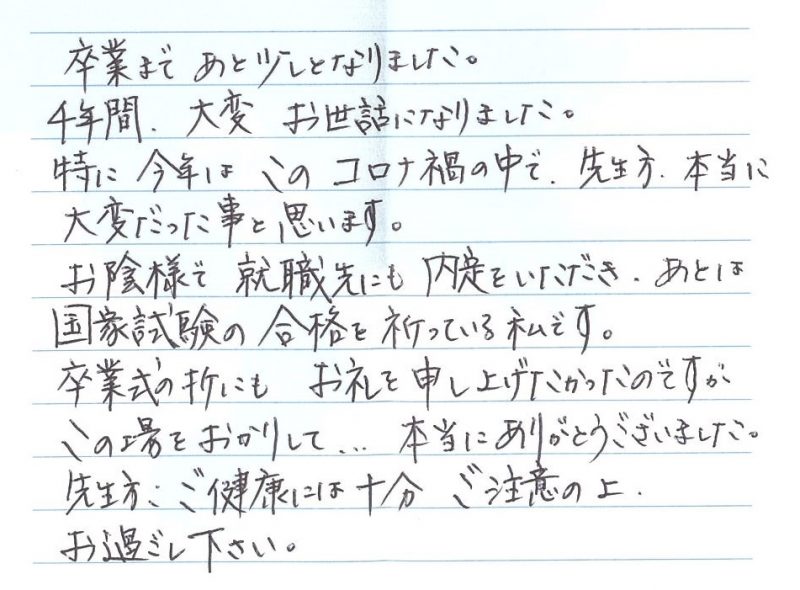 卒業まで あと少しとなりました。
4年間、大変 お世話になりました。
特に 今年は この コロナ禍の中で、先生方、本当に
大変だった事と思います。
お陰様で 就職先にも 内定をいただき、あとは
国家試験の 合格を 祈っている私です。
卒業式の折にも お礼を申し上げたかったのですが
この場をおかりして… 本当にありがとうございました。
先生方、ご健康には十分 ご注意の上、
お過ごし下さい。